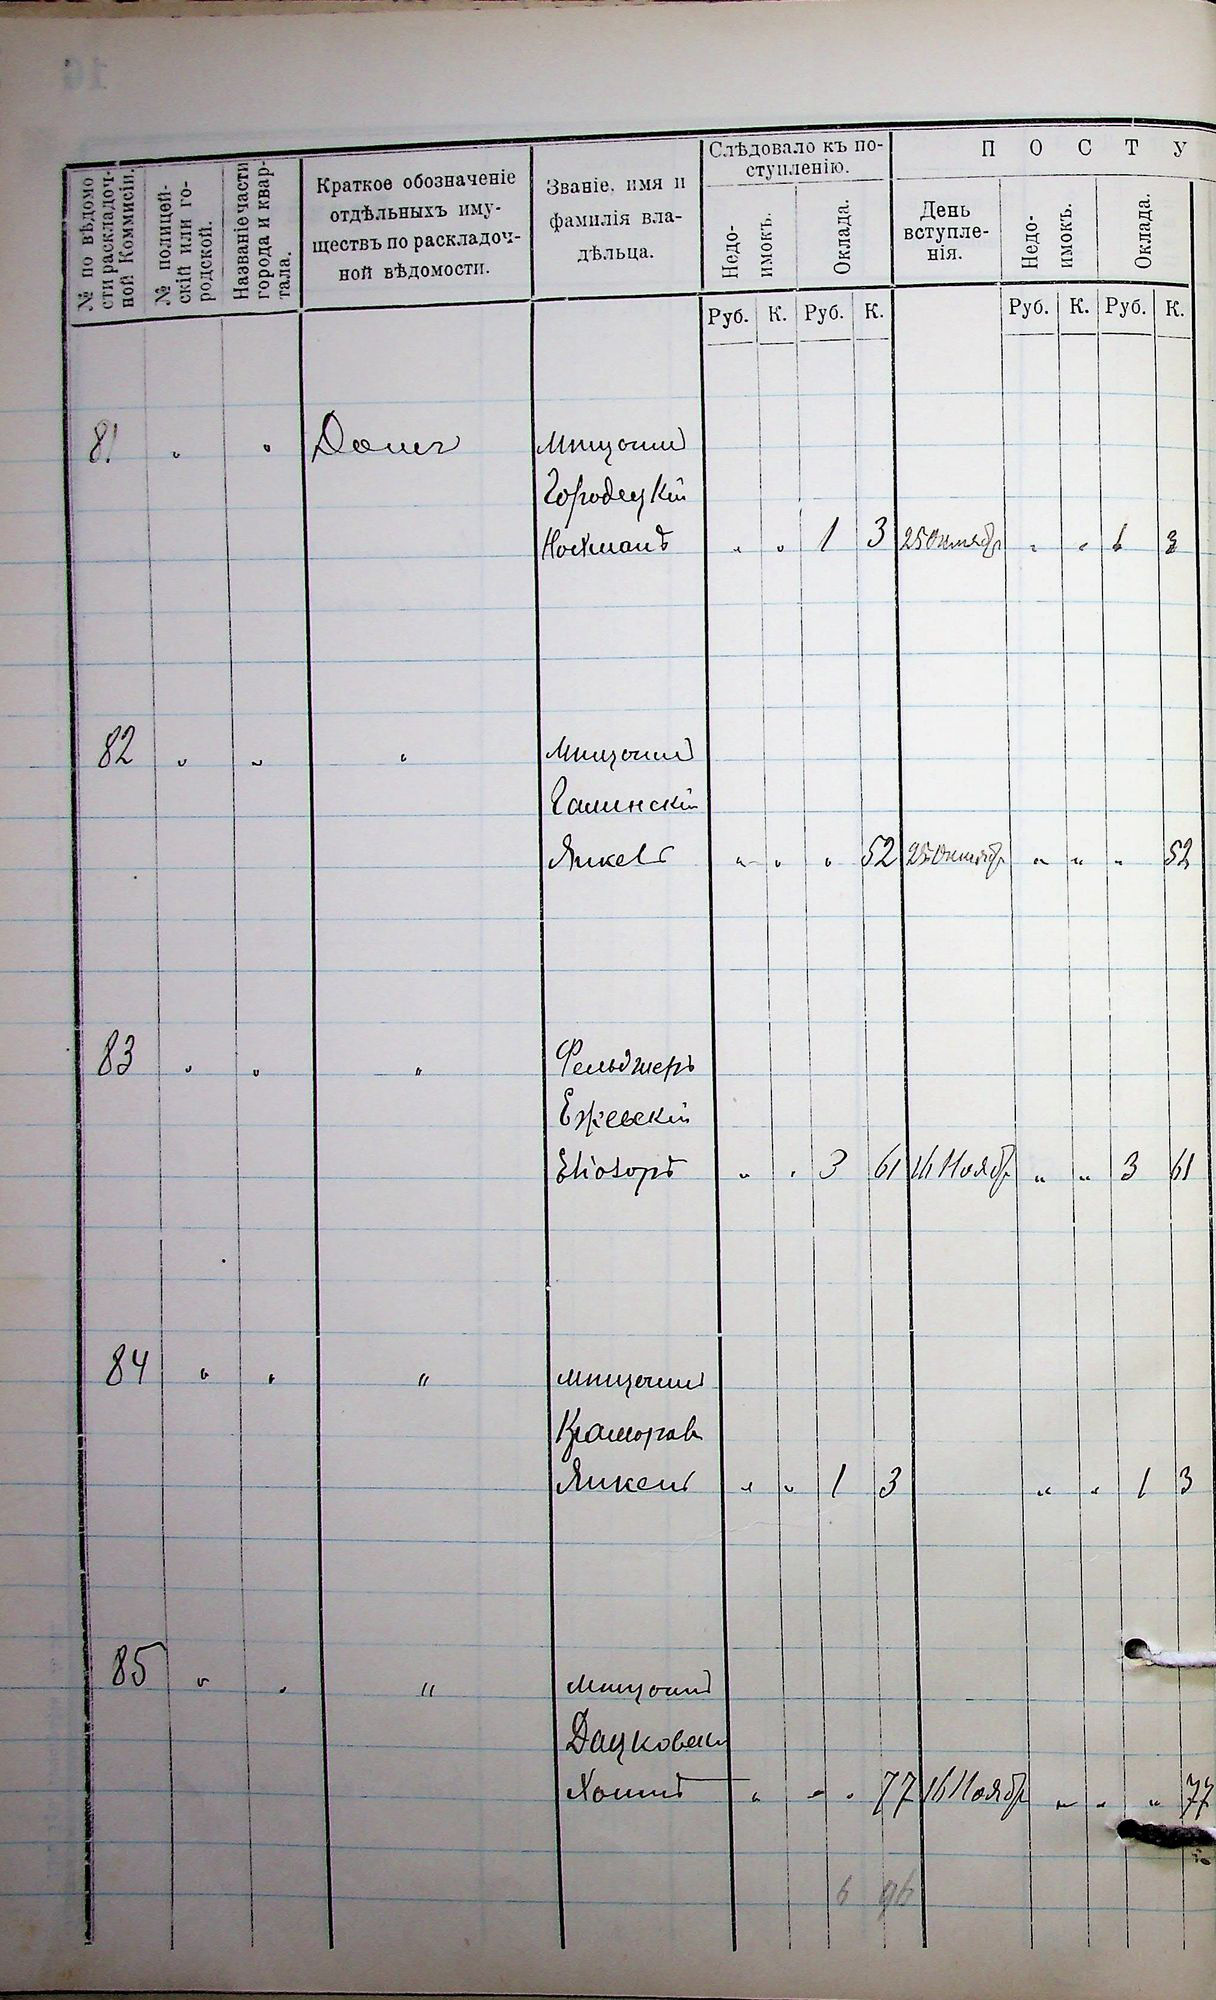 № по вѣдомо
сти раскладоч-
ной Коммисіи.
№ полицей-
скій или го-
родской.
Названіе части
города и квар-
тала.
Краткое обозначеніе
отдѣльныхъ иму-
ществъ по раскладоч-
ной вѣдомости.
Званіе, имя и
фамилія вла-
дѣльца.
Слѣдовало къ по-
ступленію.
Недо-
имокъ.
Оклада.
П О С Т У
День
вступле-
нія.
Недо-
имокъ.
Оклада.
Руб. К. Руб. К. Руб. К. Руб. К.
81 " " Домъ Мѣщанинъ
Городецкій
Нохманъ " " 1 3 25 Октябр " " 1 3
82 " " " Мѣщанинъ
Галинскій
Янкель " " " 52 25 Октябр " " " 52
83 " " " Фельдшеръ
Ежевскій
Еліозоръ " " 3 61 16 Ноябр " " 3 61
84 " " " Мѣщанинъ
Янкель " " 1 3 " " 1 3
85 " " " Мѣщанинъ
Дацковскій
Хаимъ " " " 77 16 Ноябр " " " 77
6 96